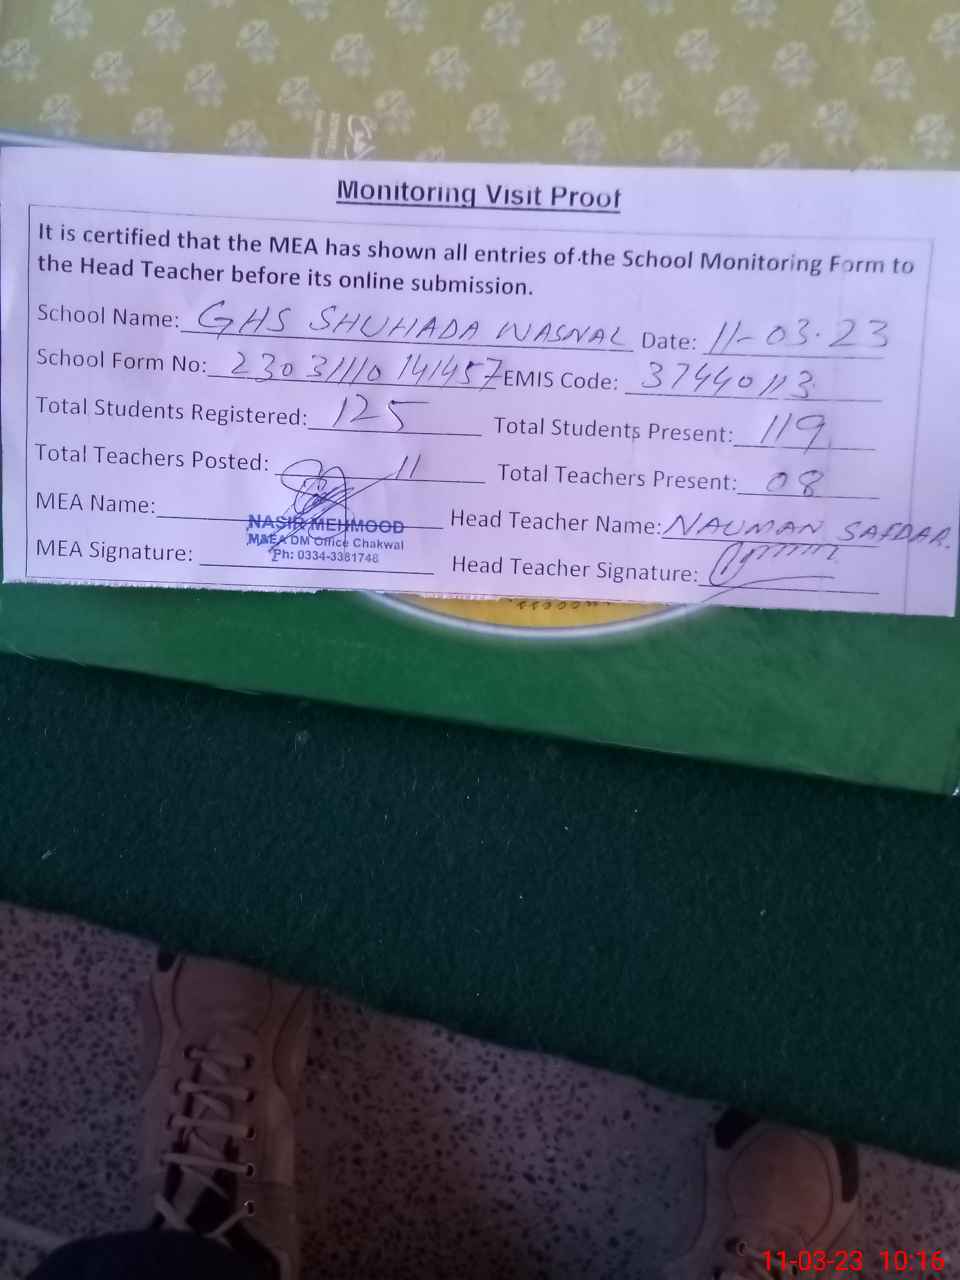 Monitoring Visit Proof
It is certified that the MEA has shown all entries of the School Monitoring Form to
the Head Teacher before its online submission.
School Name: GHS SHUHADA WASNAL Date: 11-03-23
School Form No: 23031110141457 EMIS Code: 37440113
Total Students Registered: 125 Total Students Present: 119
Total Teachers Posted: 11 Total Teachers Present: 08
MEA Name: NASIR MEHMOOD Head Teacher Name: NAUMAN SAFDAR.
M&EA DM Office Chakwal
Ph: 0334-3381748
MEA Signature: Head Teacher Signature:
11-03-23 10:16